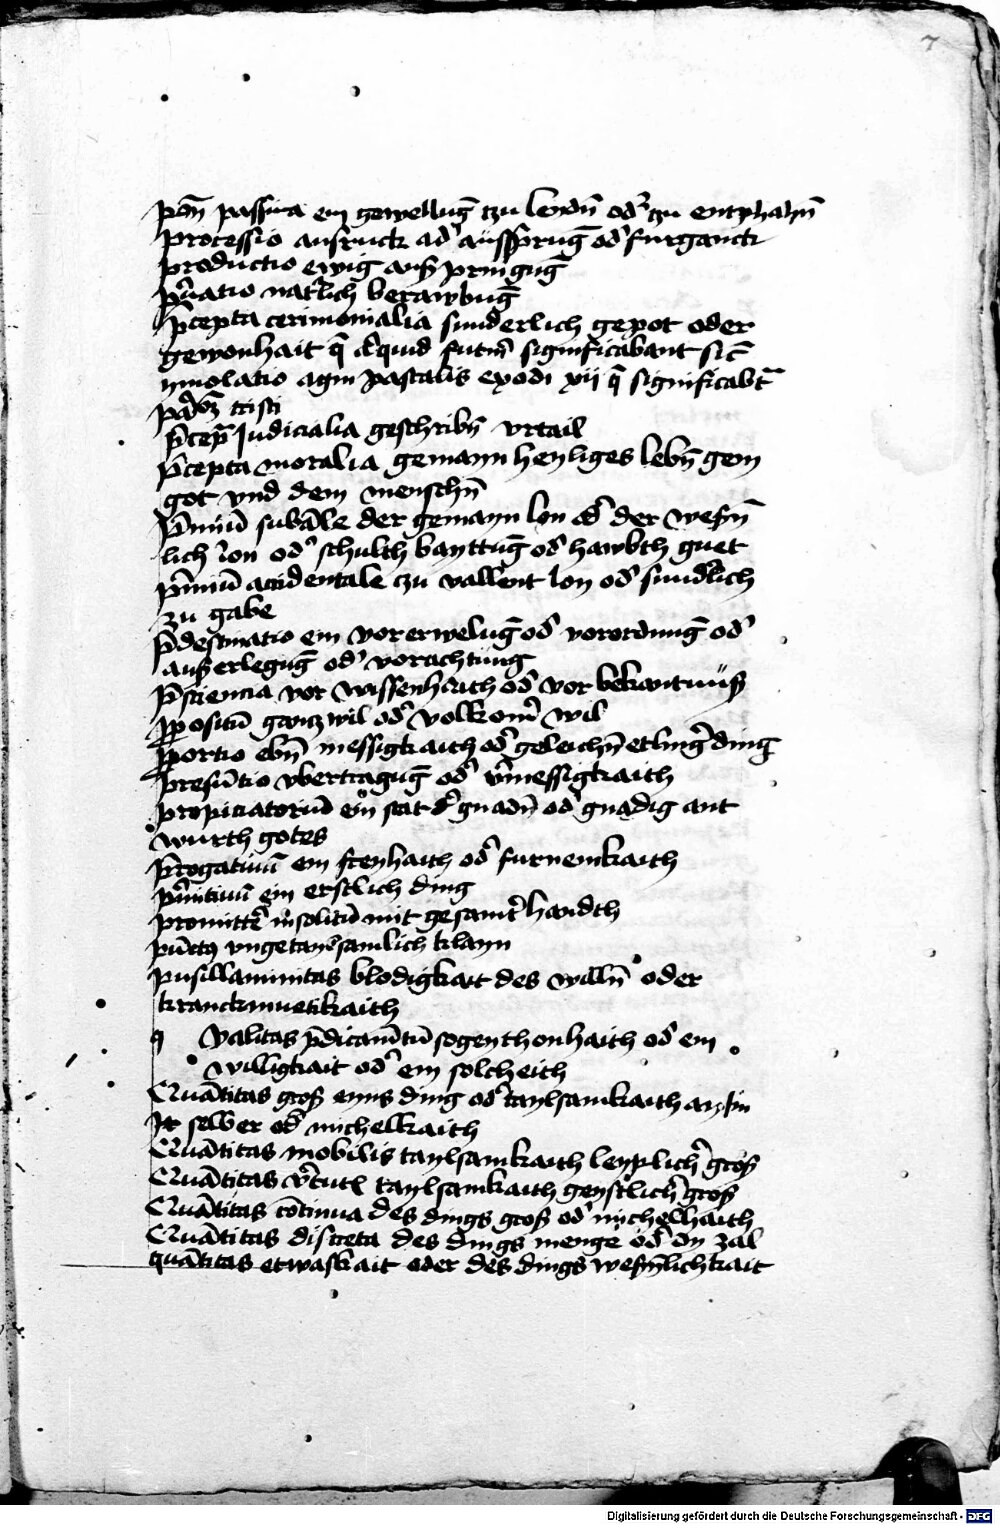 7
pōm passiua ein gewellūg tzu leydn̄ od' tzu entphahn̄
Processio ausruck ad' aussprūg od' furganck
productio ewig ausz prīngūg
p'uatio natrlich berawbūg
p̄cepta cerimonialia sunderlich gepot oder
gewonhait q̄ aliquid futm̄ significabant sic̄
ymolatio agni pascalis exodi xij q̄ significabt̄
cristi
p̄cep̄ Judicialia geschribn̄ vrtail
p̄cepta moralia gemayn heyliges lebn̄ gem
got vnd dem menschn̄
p̄miū subāle der gemayn lon od' der wesn̄
lich lon od' schulth bayttūg od' hawbth guet
p̄miū accidentale tzu vallent lon od' sund'lich
zu gabe
p̄destinatio ein vor erwelūg od' vorordnūg od'
ausz erlegūg od' vorachtung
p̄sciencia vor wissenhaith od' vor bekantnusz
ppositū gantz wil od' volkom̄ wil
pportio ebn̄ messigkaith od' geleichn̄ etling' ding
presūtio vbertragūg od' v'messigkaith
propiciatoriū ein stat d' gnadn̄ od' gnadig ant
wurth gotes
p̄rogatiuū ein freyhaith od' furnemkaith
p'mitiuū ein erstlich ding
promitt'e īsolitū mit gesamt' handth
pūct9 vngetaylsamlich klayn
pusillanimitas blodigkait des willn̄ oder
kranckmuetikaith
q Valitas p̄dicam̄tū sogenthonhaith od' ein
willigkait od' ein solcheith
Quātitas grosz eyns ding od' taylsamkaith an ym
selber od' michelkaith
Quātitas mobilis taylsamkaith leyplich' grosz
Quātitas v'tutl taylsamkaith geystlich' grosz
Quātitas cōtinua des dings grosz od' michelhaith
Quātitas discreta des dings menge od' dy zal
quātitas etwaskait oder des dings wesn̄lichkait
Digitalisierung gefördert durch die Deutsche Forschungsgemeinschaft - DFG